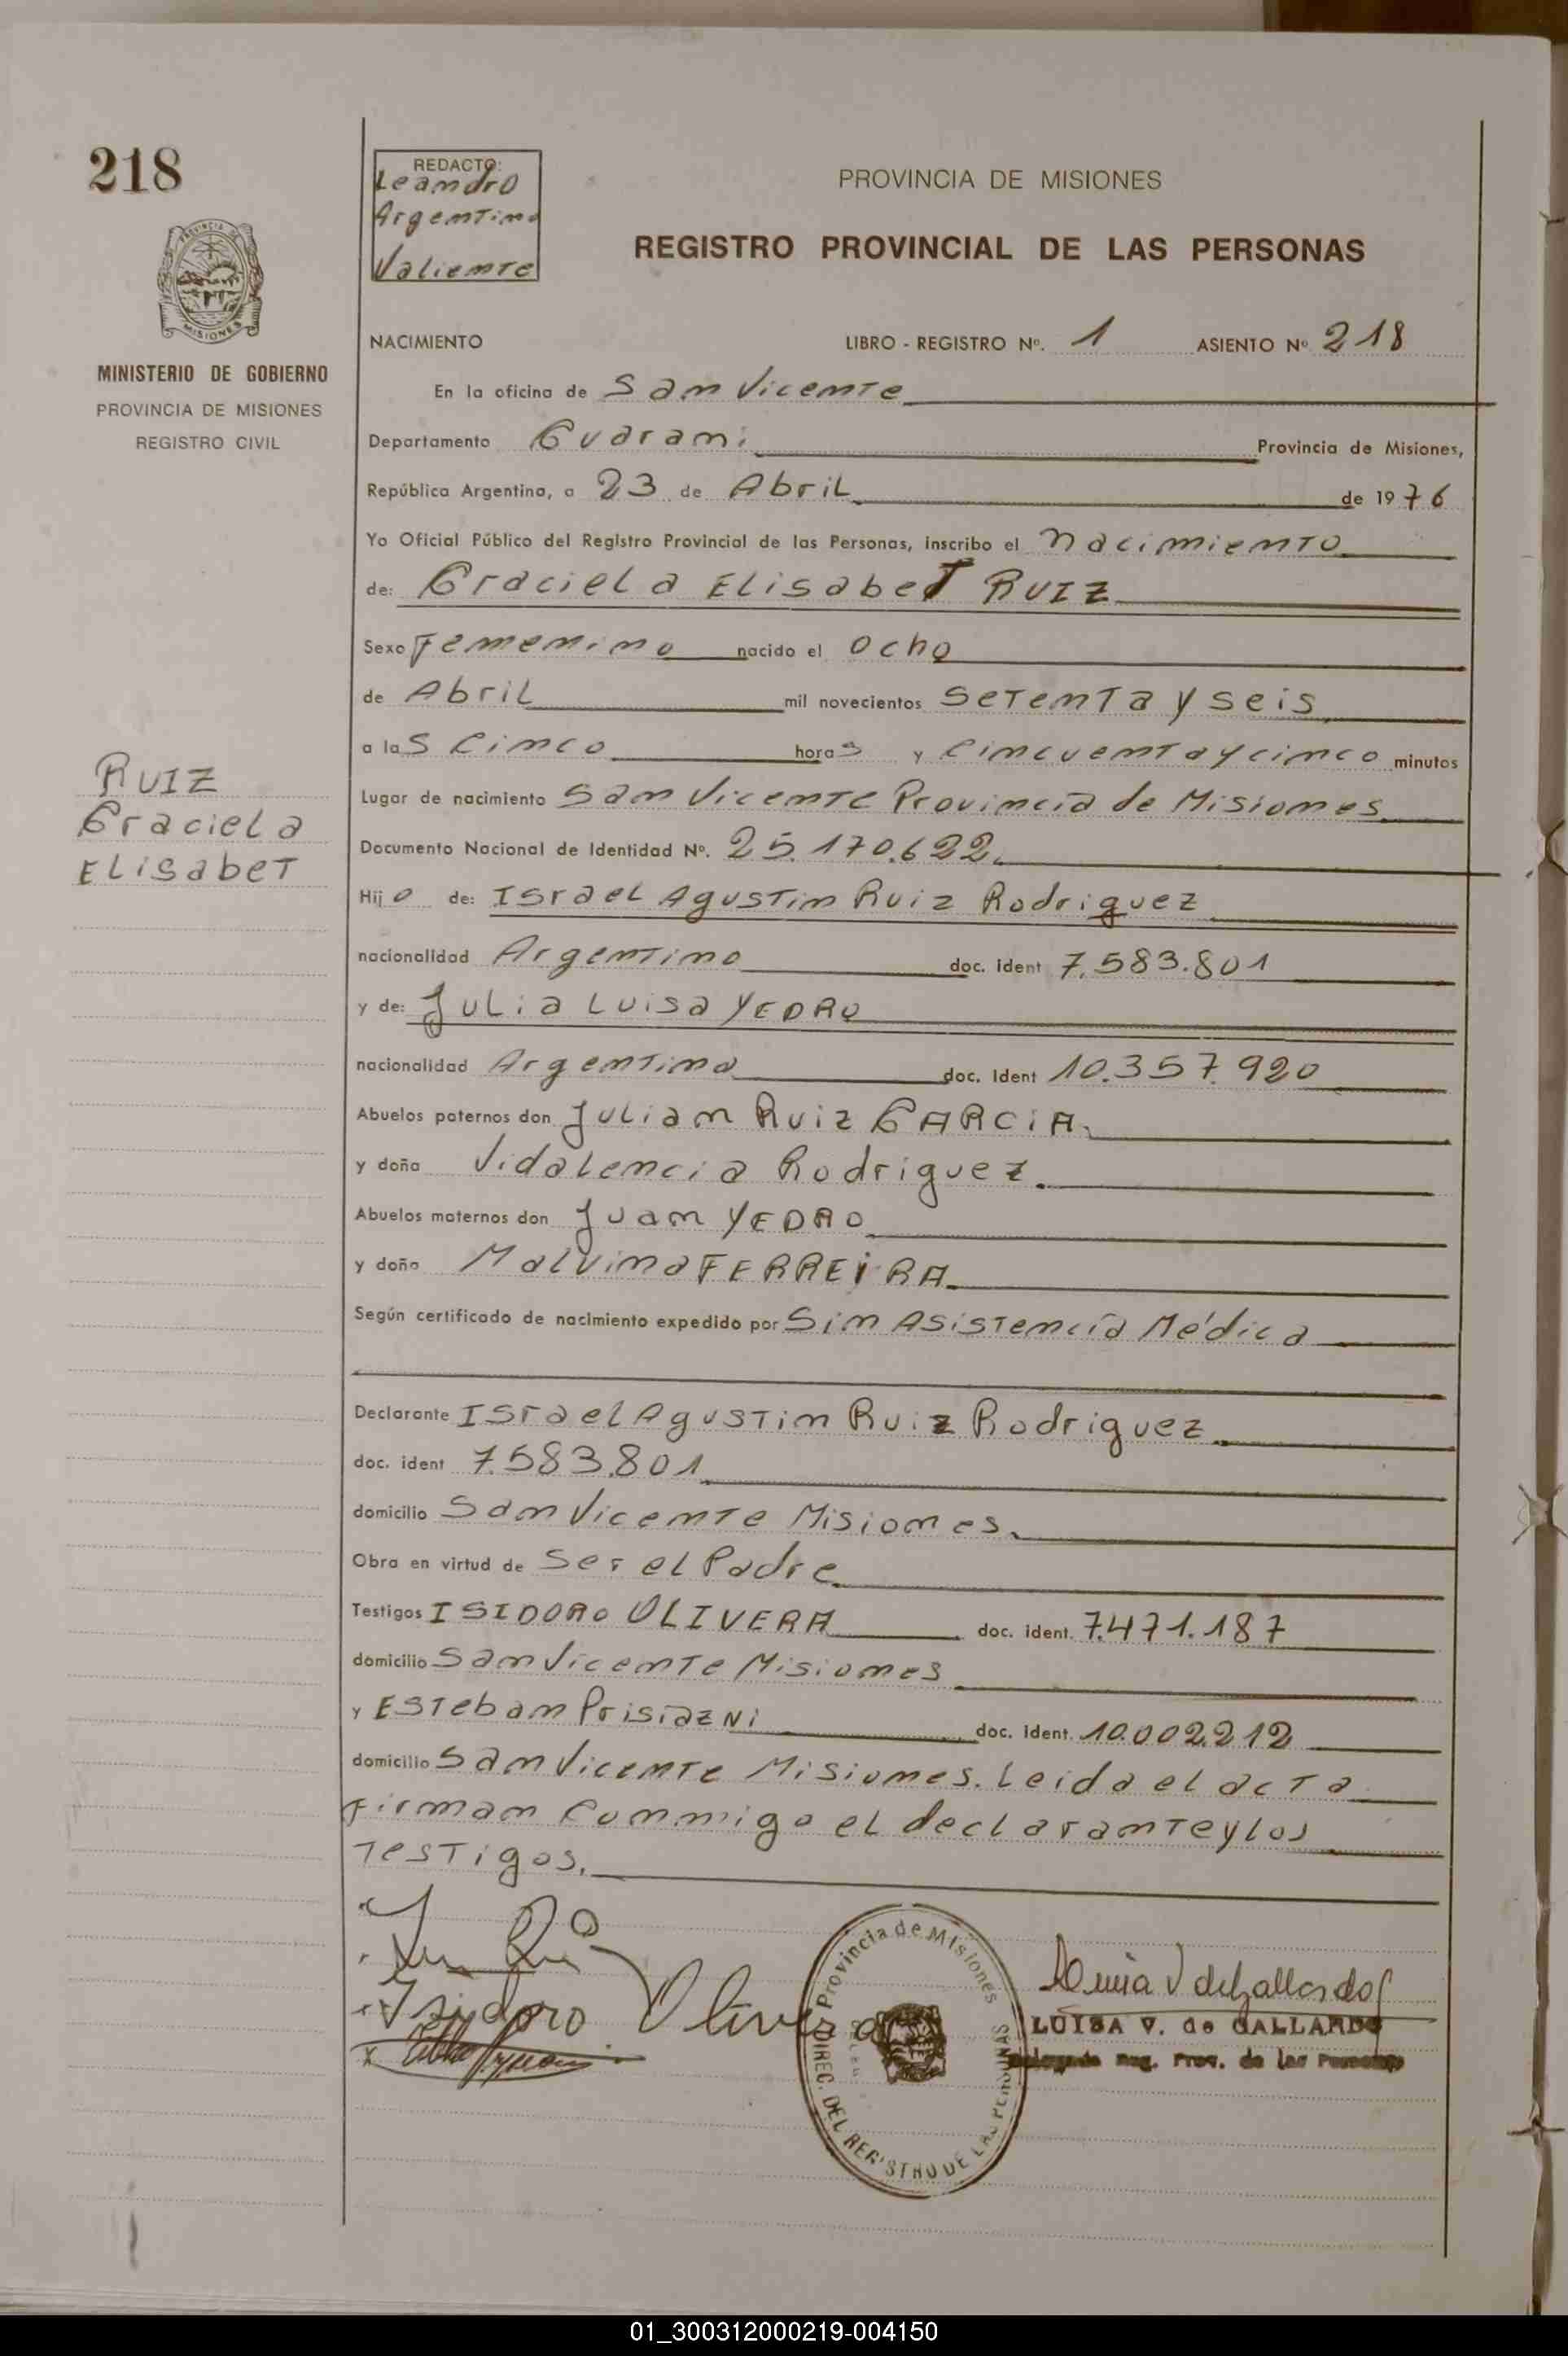 218
PROVINCIA DE
MISIONES
MINISTERIO DE GOBIERNO
PROVINCIA DE MISIONES
REGISTRO CIVIL
RUIZ
Graciela
Elisabet
REDACTO:
Leandro
Argentino
Valiente
PROVINCIA DE MISIONES
REGISTRO PROVINCIAL DE LAS PERSONAS
NACIMIENTO LIBRO - REGISTRO Nº. 1 ASIENTO Nº 218
En la oficina de San Vicente
Departamento Guarani Provincia de Misiones,
República Argentina, a 23 de Abril de 1976
Yo Oficial Público del Registro Provincial de las Personas, inscribo el nacimiento
de: Graciela Elisabet RUIZ
Sexo Femenino nacido el ocho
de Abril mil novecientos setenta y seis
a las cinco horas y cincuenta y cinco minutos
Lugar de nacimiento San Vicente Provincia de Misiones
Documento Nacional de Identidad Nº. 25.170.622.
Hijo de: Israel Agustin Ruiz Rodriguez
nacionalidad Argentino doc. ident 7.583.801
y de: Julia Luisa YEDRO
nacionalidad Argentina doc. ident 10.357.920
Abuelos paternos don Julian Ruiz GARCIA.
y doña Vidalencia Rodriguez.
Abuelos maternos don Juan YEDRO
y doña Malvina FERREIRA
Según certificado de nacimiento expedido por Sin Asistencia Médica
Declarante Israel Agustin Ruiz Rodriguez
doc. ident 7.583.801
domicilio San Vicente Misiones.
Obra en virtud de Ser el Padre
Testigos ISIDORO OLIVERA doc. ident. 7.471.187
domicilio San Vicente Misiones
y Esteban Prisiazni doc. ident. 10.002.212
domicilio San Vicente Misiones. Leida el acta
Firman conmigo el declarante y los
Testigos.
Isidoro Olivera
Provincia de Misiones
DIREC. DEL REGISTRO DE LAS PERSONAS
LUISA V. de GALLARDO
Delegada Reg. Prov. de las Personas
01_300312000219-004150